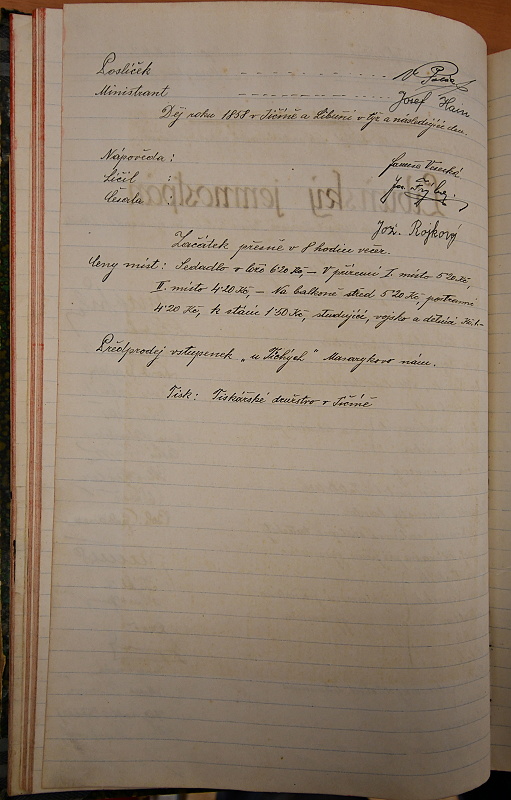 Poslíček - - - - - - - N.
Ministrant - - - - - - - Josef Hain
Děj roku 1858 v Jičíně a Libuni v týž a následující den.
Nápověda :
Líčil :
Česala : Jos. Rojkový
Začátek přesně v 8 hodin večer.
Ceny míst: Sedadlo v loži 6·20 Kč, – V přízemí I. místo 5·20 Kč,
II. místo 4·20 Kč, – Na balkoně střed 5·20 Kč, postranní
4·20 Kč, k stání 1·50 Kč, studující, vojsko a dělníci
Předprodej vstupenek „u Tichých“ Masarykovo nám.
Tisk: Tiskařské družstvo v Jičíně
Libuňský jemnostpán